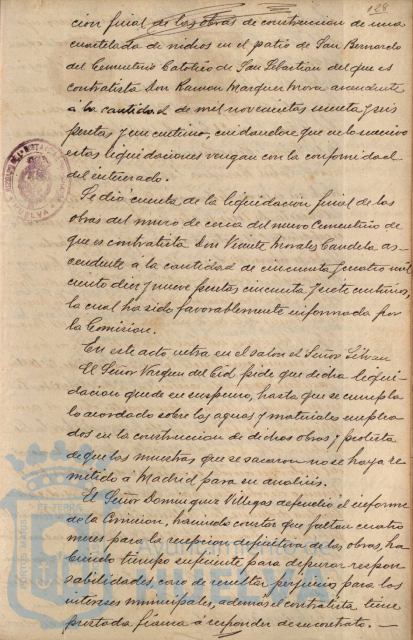 128
cion final de las obras de construccion de una
cuartelada de nichos en el patio de San Bernardo
del Cementerio Católico de San Sebastian del que es
contratista Don Ramon Marquez Mora ascendente
á la cantidad de mil novecientas sesenta y seis
pesetas y un centimo, cuidandose que en lo sucesivo
estas liquidaciones vengan con la conformidad
del interesado.
Se dió cuenta de la liquidacion final de las
obras del muro de cerca del nuevo Cementerio de
que es contratista Don Vicente Morales Candela as-
cendente á la cantidad de cincuenta y cuatro mil
ciento diez y nueve pesetas cincuenta y siete centimos,
la cual ha sido favorablemente informada por
la Comision.
En este acto entra en el salon el Señor Silvan
El Señor Vazquez del Cid pide que dicha liqui-
dacion quede en suspenso, hasta que se cumpla
lo acordado sobre las aguas y materiales emplea-
dos en la construccion de dichas obras; y protesta
de que las muestras que se sacaron no se haya re-
mitido á Madrid para su analisis.
El Señor Dominguez Villegas defendió el informe
de la Comision, haciendo constar que faltan cuatro
meses para la recepcion definitiva de las obras, ha-
biendo tiempo suficiente para depurar respon-
sabilidades, caso de resultar perjuicio para los
intereses municipales, ademas el contratista tiene
prestada fianza á responder de su contrato.
HUELVA
Ayuntamiento
HUELVA